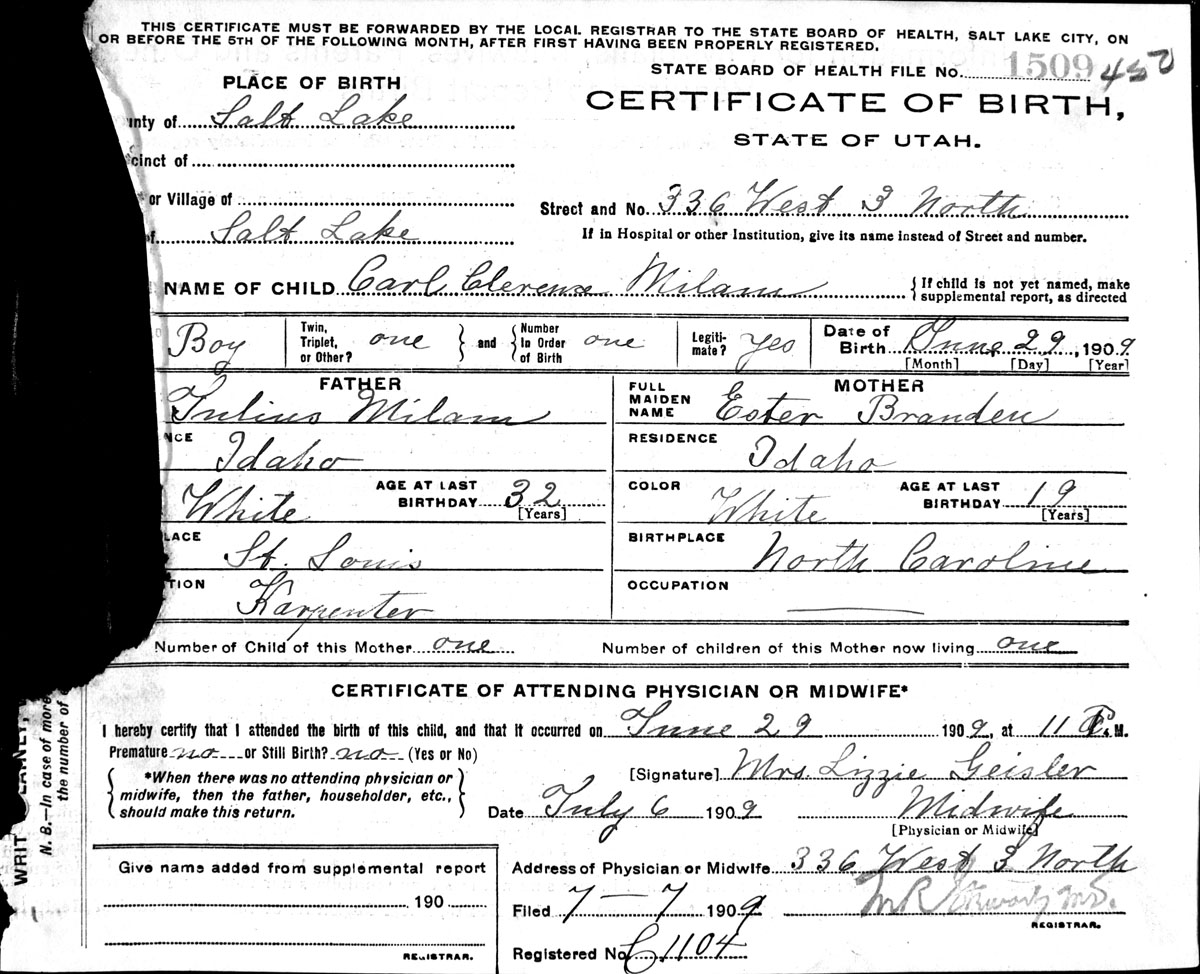 THIS CERTIFICATE MUST BE FORWARDED BY THE LOCAL REGISTRAR TO THE STATE BOARD OF HEALTH, SALT LAKE CITY, ON
OR BEFORE THE 5TH OF THE FOLLOWING MONTH, AFTER FIRST HAVING BEEN PROPERLY REGISTERED.
STATE BOARD OF HEALTH FILE No. 1509 450
PLACE OF BIRTH
CERTIFICATE OF BIRTH,
STATE OF UTAH.
nty of Salt Lake
cinct of
or Village of
Street and No. 336 West 3 North
of Salt Lake
If in Hospital or other Institution, give its name instead of Street and number.
NAME OF CHILD Carl Clerense Milam
{ If child is not yet named, make
supplemental report, as directed
Boy
Twin, Triplet, or Other? one } and { Number In Order of Birth one
Legiti-mate? yes
Date of Birth June 29, 1909
[Month] [Day] [Year]
FATHER
Julius Milam
NCE
Idaho
White
AGE AT LAST BIRTHDAY 32
[Years]
LACE
St. Louis
TION
Karpenter
MOTHER
FULL MAIDEN NAME Ester Branden
RESIDENCE
Idaho
COLOR
White
AGE AT LAST BIRTHDAY 19
[Years]
BIRTHPLACE
North Caroline
OCCUPATION
Number of Child of this Mother one
Number of children of this Mother now living one
CERTIFICATE OF ATTENDING PHYSICIAN OR MIDWIFE*
I hereby certify that I attended the birth of this child, and that it occurred on June 29 1909, at 11 P. M.
Premature no or Still Birth? no (Yes or No)
{ *When there was no attending physician or
midwife, then the father, householder, etc.,
should make this return. }
[Signature] Mrs. Lizzie Geisler
Date July 6 1909
Midwife
[Physician or Midwife]
Give name added from supplemental report
190
REGISTRAR.
Address of Physician or Midwife 336 West 3 North
Filed 7-7 1909
M.D.
REGISTRAR.
Registered No. C1104
WRIT
N. B.—In case of more
the number of